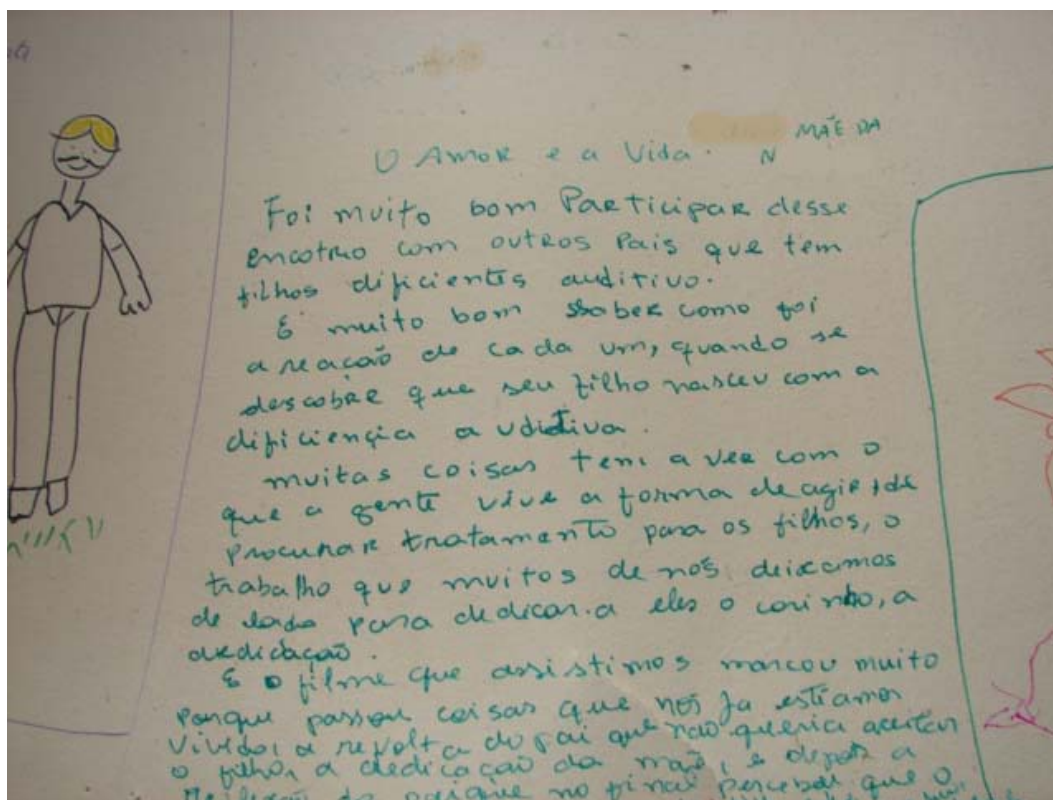 MÃE DA
O Amor e a Vida. N
Foi muito bom Participar desse
encotrio com outros Pais que tem
filhos dificientes auditivo.
E muito bom saber como foi
a reação de cada um, quando se
descobre que seu filho nasceu com a
dificiençia auditiva.
muitas coisas tem a ver com o
que a gente vive a forma de agir, de
procurar tratamento para os filhos, o
trabalho que muitos de nós deixamos
de lado para dedicar a eles o carinho, a
dedicação.
E o filme que assistimos marcou muito
porque passou coisas que nós ja estiamos
vividos, a revolta do pai que não queria aceitar
o filho, a dedicação da mãe, e depois a
do pai que no final percebeu que o